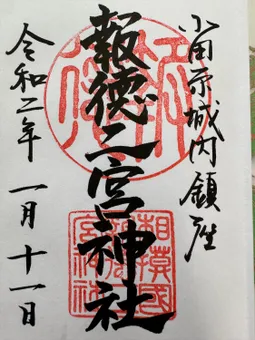 小田原城内鎮座
報徳二宮神社
令和二年 一月十一日
相摸國
報徳二
宮神社